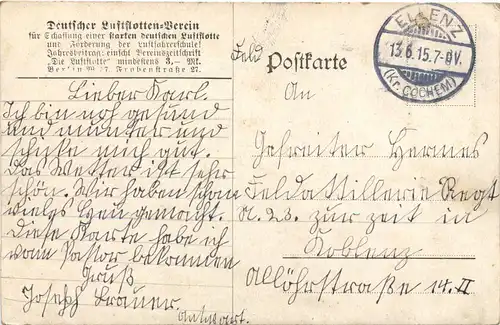 Deutscher Luftflotten-Verein
für Schaffung einer starken deutschen Luftflotte
und Förderung der Luftfahrerschule!
Jahresbeitrag: einschl Vereinszeitschrift
"Die Luftflotte" mindestens 3,— Mk.
Berlin W 27. Frobenstraße 27.
Lieber Karl.
Ich bin noch gesund
und munter und
schicke mich gut.
Das Wetter ist sehr
schön. Wir haben schon
vieles Heu gemacht.
Diese Karte habe ich
vom Pastor bekommen
Gruß
Joseph Brauer
Antwort.
Feld Postkarte
ELLENZ
13.6.15.7-8V.
(Kr. COCHEM)
An
Gefreiter Hermes
Feldartillerie Regt
N. 23. zur zeit in
Koblenz
Allöhrstraße 14. II